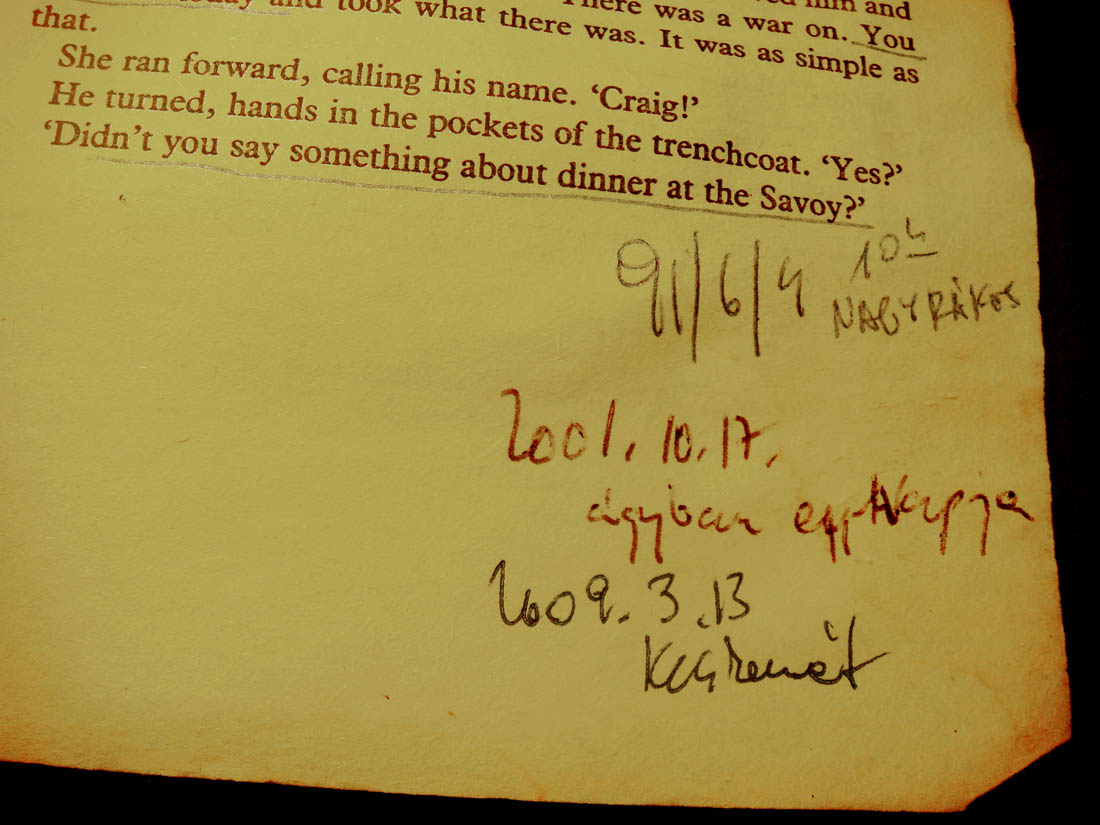 him and
today and took what there was. There was a war on. You
that. It was as simple as
She ran forward, calling his name. ‘Craig!’
He turned, hands in the pockets of the trenchcoat. ‘Yes?’
‘Didn’t you say something about dinner at the Savoy?’
91/6/4 10h
NAGYRÁKOS
2001. 10. 17.
ágyban
2009. 3. 13
Kecskemét